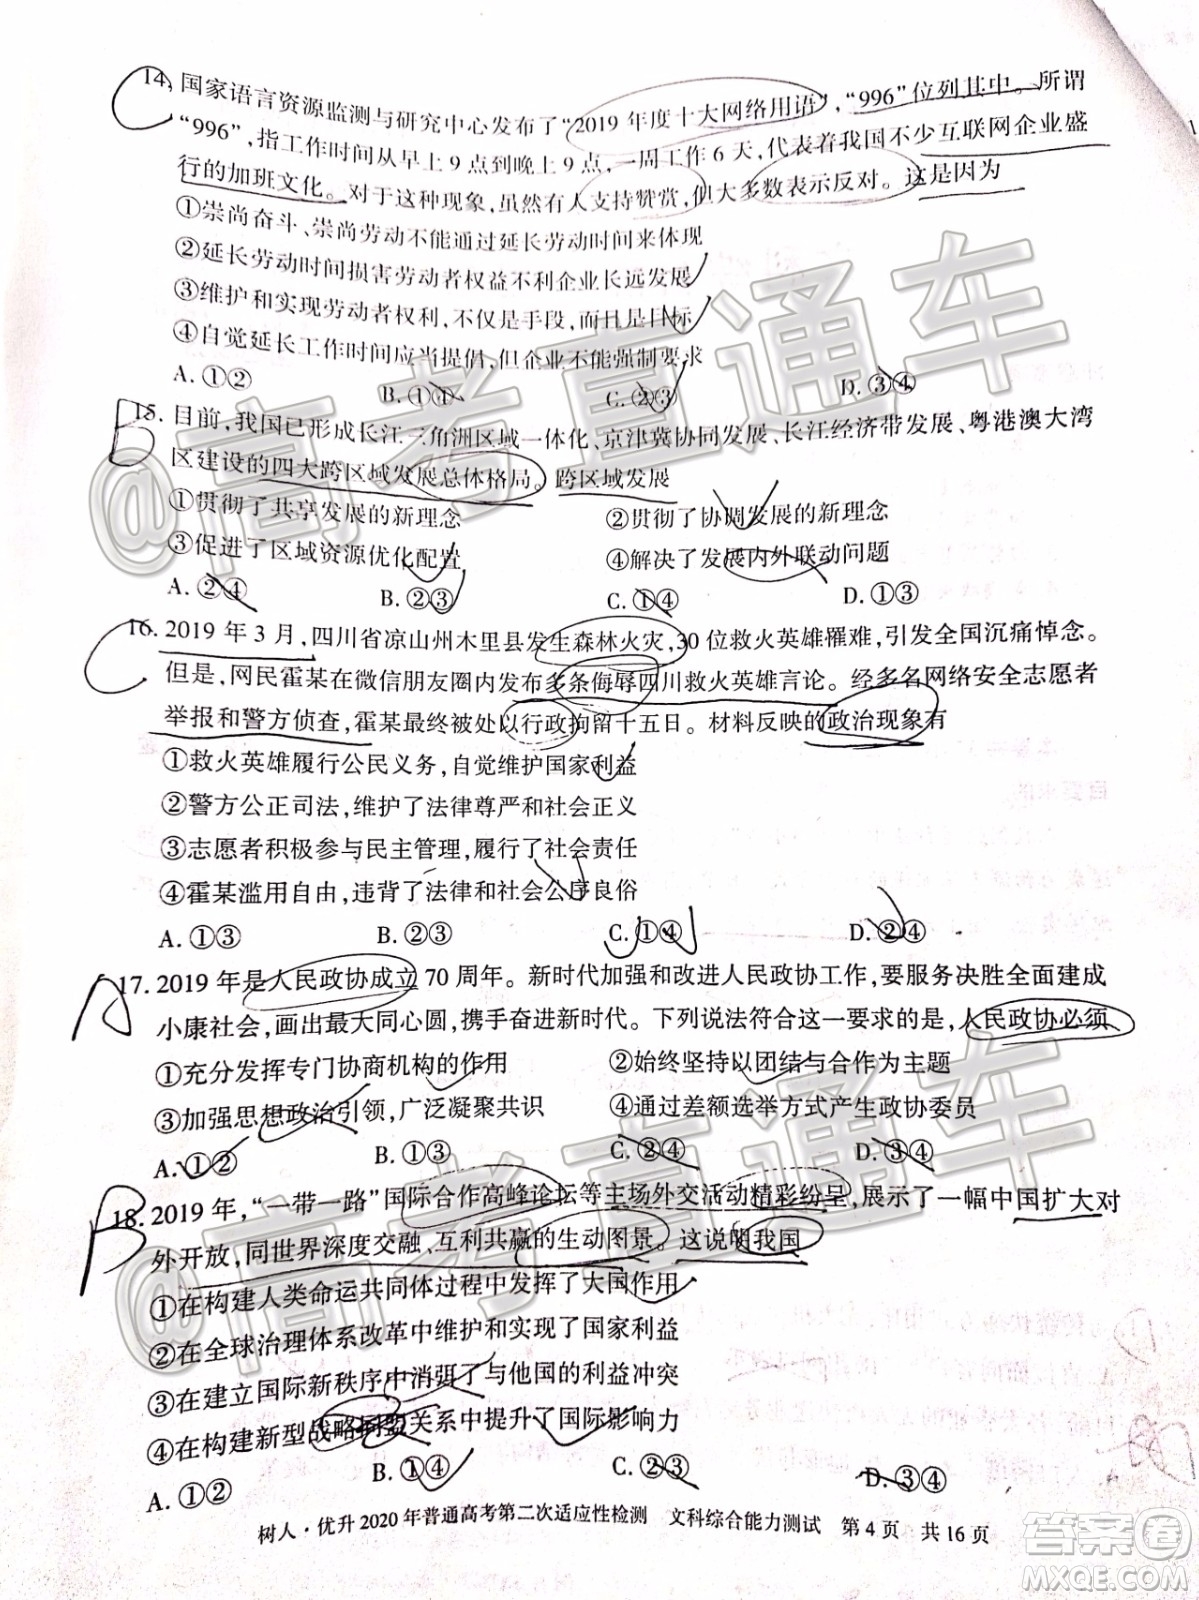 14. 国家语言资源监测与研究中心发布了“2019 年度十大网络用语”，“996”位列其中。所谓
“996”，指工作时间从早上 9 点到晚上 9 点，一周工作 6 天，代表着我国不少互联网企业盛
行的加班文化。对于这种现象，虽然有人支持赞赏，但大多数表示反对。这是因为
①崇尚奋斗、崇尚劳动不能通过延长劳动时间来体现
②延长劳动时间损害劳动者权益不利企业长远发展
③维护和实现劳动者权利，不仅是手段，而且是目标
④自觉延长工作时间应当提倡，但企业不能强制要求
A. ①② B. ①④ C. ②③ D. ③④
C
15. 目前，我国已形成长江三角洲区域一体化、京津冀协同发展、长江经济带发展、粤港澳大湾
区建设的四大跨区域发展总体格局。跨区域发展
①贯彻了共享发展的新理念 ②贯彻了协调发展的新理念
③促进了区域资源优化配置 ④解决了发展内外联动问题
A. ②④ B. ②③ C. ①④ D. ①③
B
16. 2019 年 3 月，四川省凉山州木里县发生森林火灾，30 位救火英雄罹难，引发全国沉痛悼念。
但是，网民霍某在微信朋友圈内发布多条侮辱四川救火英雄言论。经多名网络安全志愿者
举报和警方侦查，霍某最终被处以行政拘留十五日。材料反映的政治现象有
①救火英雄履行公民义务，自觉维护国家利益
②警方公正司法，维护了法律尊严和社会正义
③志愿者积极参与民主管理，履行了社会责任
④霍某滥用自由，违背了法律和社会公序良俗
A. ①③ B. ②③ C. ①④ D. ②④
C
17. 2019 年是人民政协成立 70 周年。新时代加强和改进人民政协工作，要服务决胜全面建成
小康社会，画出最大同心圆，携手奋进新时代。下列说法符合这一要求的是，人民政协必须
①充分发挥专门协商机构的作用 ②始终坚持以团结与合作为主题
③加强思想政治引领，广泛凝聚共识 ④通过差额选举方式产生政协委员
A. ①② B. ①③ C. ②④ D. ③④
A
18. 2019 年，“一带一路”国际合作高峰论坛等主场外交活动精彩纷呈，展示了一幅中国扩大对
外开放，同世界深度交融、互利共赢的生动图景。这说明我国
①在构建人类命运共同体过程中发挥了大国作用
②在全球治理体系改革中维护和实现了国家利益
③在建立国际新秩序中消弭了与他国的利益冲突
④在构建新型战略同盟关系中提升了国际影响力
A. ①② B. ①④ C. ②③ D. ③④
B
树人·优升 2020 年普通高考第二次适应性检测 文科综合能力测试 第 4 页 共 16 页
@高考直通车
@高考直通车
答案圈
MXQE.COM